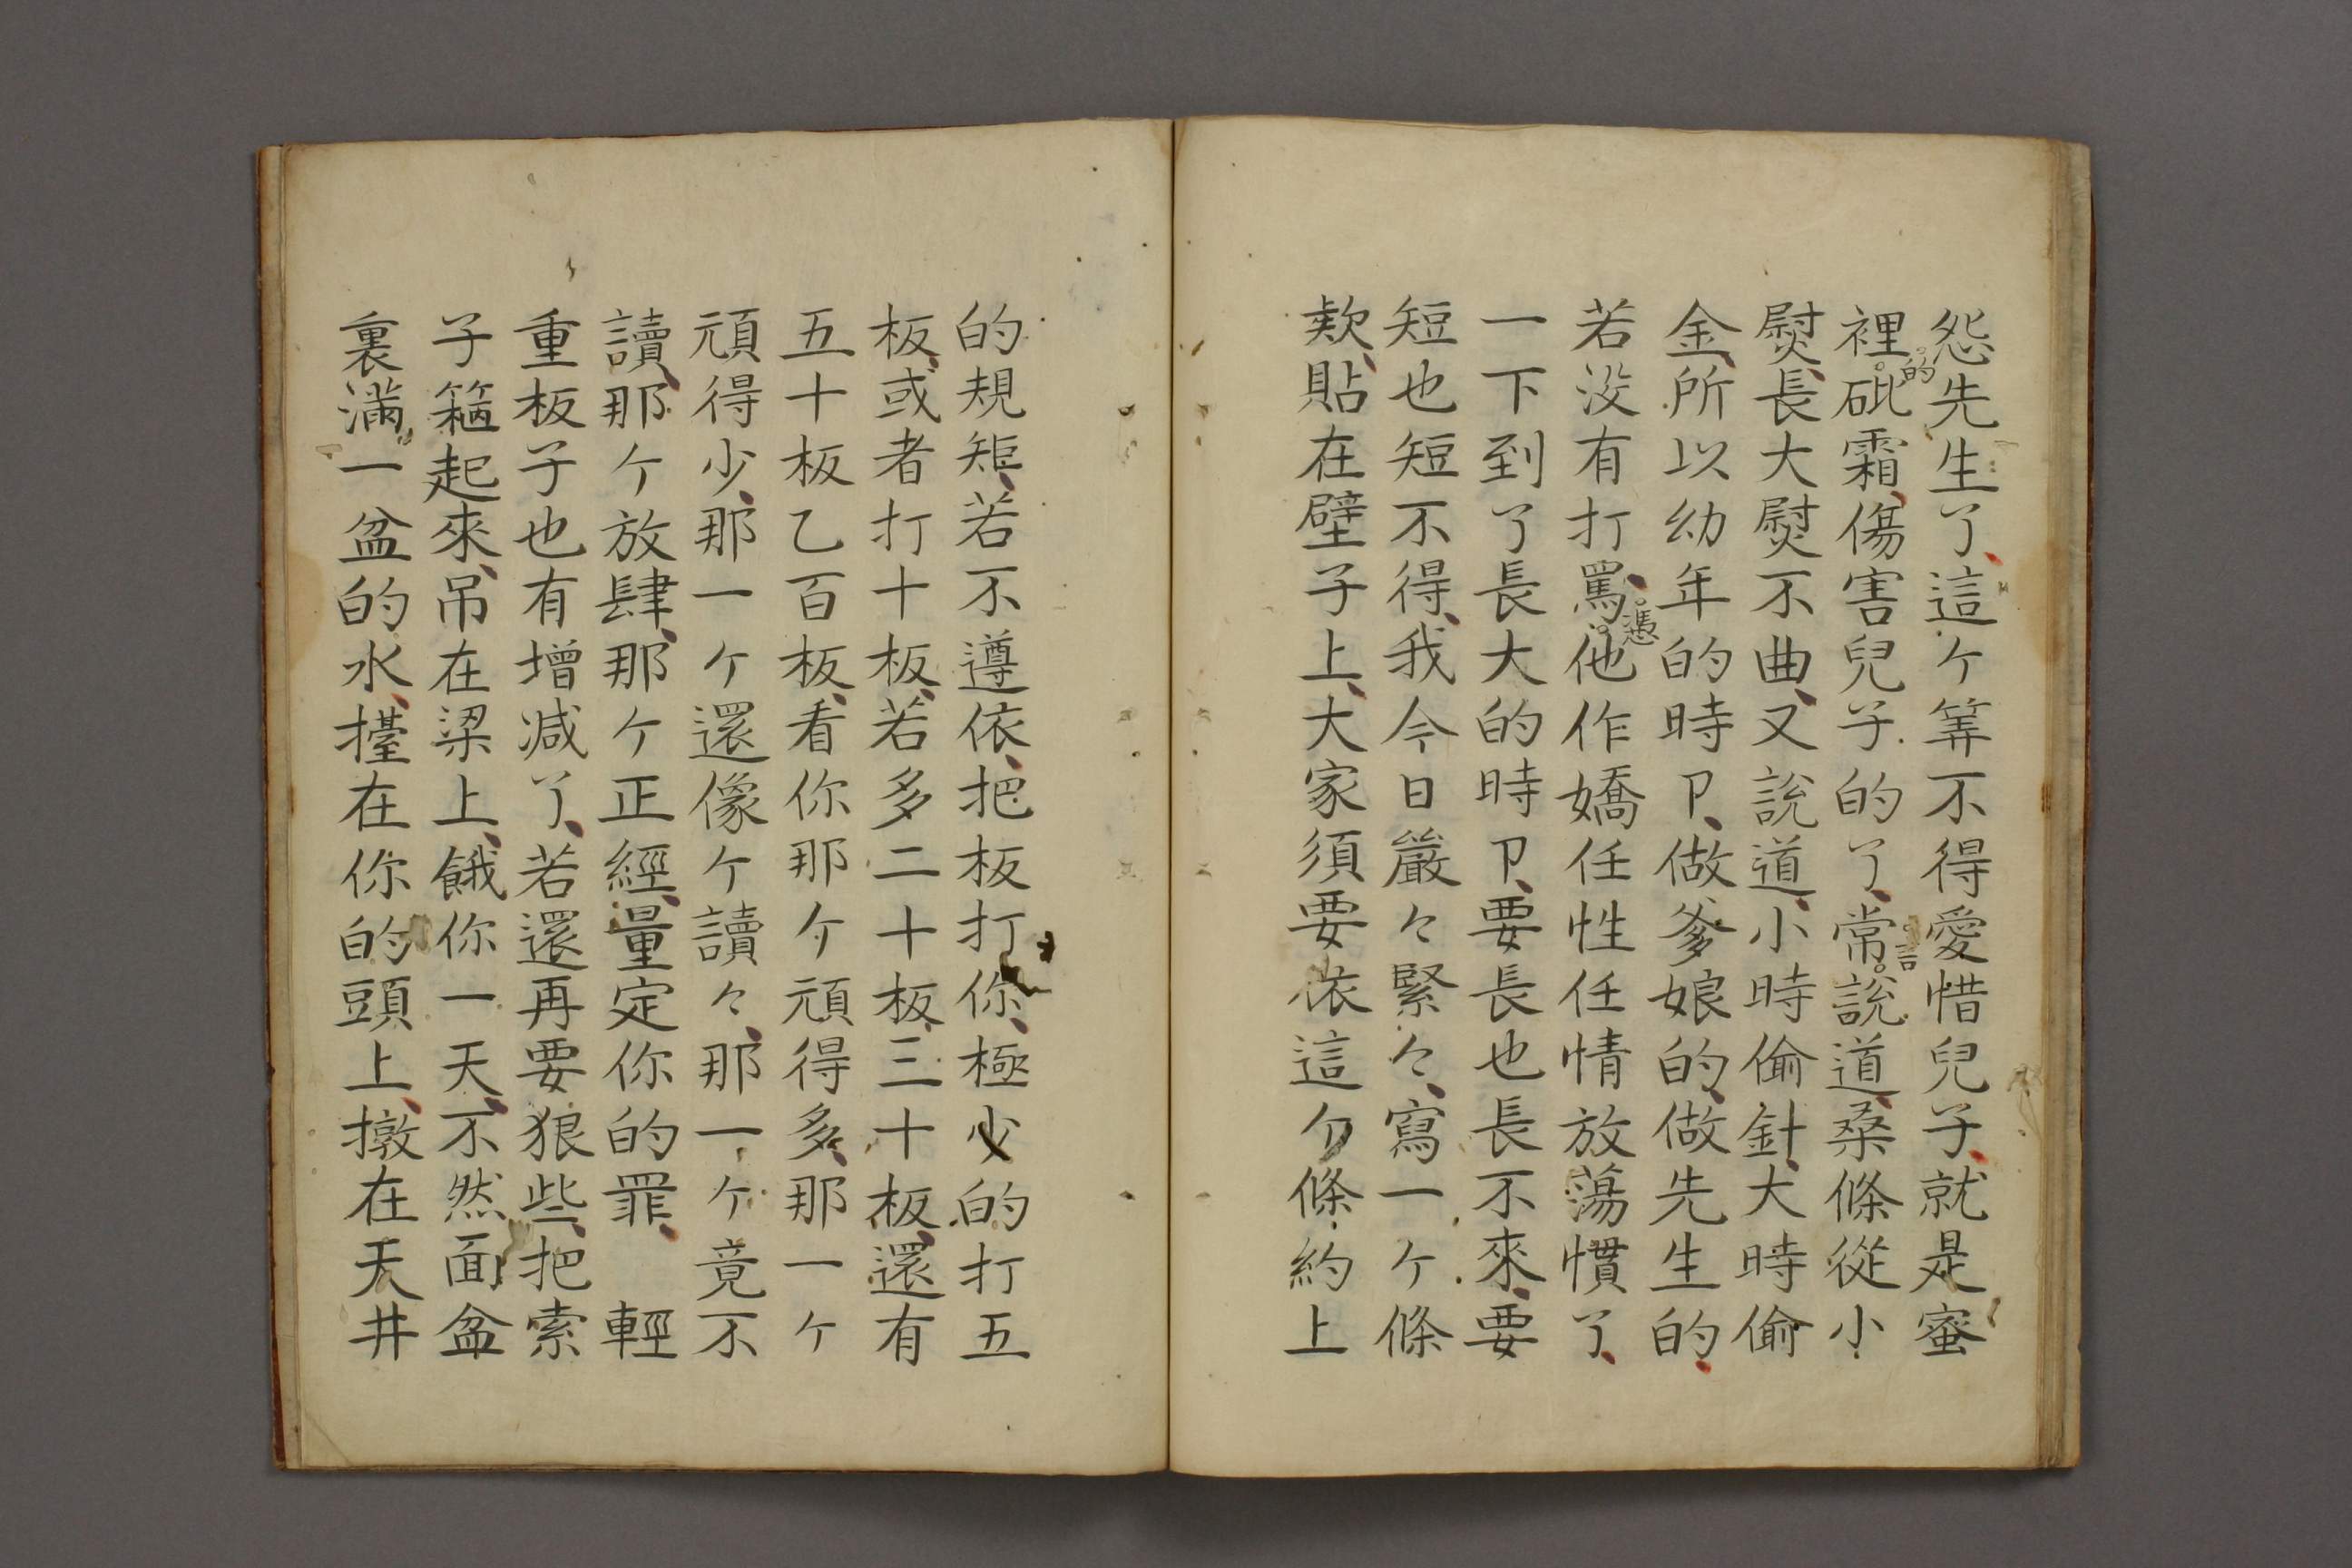 怨先生了、這ケ筭不得愛惜兒子、就是蜜
裡的砒霜、傷害兒子的了、常言說道、桑條從小
熨、長大熨不曲、又說道、小時偷針、大時偷
金、所以幼年的時卩、做爹娘的、做先生的、
若没有打罵、憑他作嬌任性任情放蕩慣了、
一下到了長大的時卩、要長也長不來、要
短也短不得、我今日嚴々緊々、寫一ケ條
欵、貼在壁子上、大家須要依這个條約上
的規矩、若不遵依、把板打你、極少的打五
板、或者打十板、若多二十板、三十板、還有
五十板乙百板、看你那ケ頑得多、那一ケ
頑得少、那一ケ還像ケ讀々、那一ケ竟不
讀、那ケ放肆、那ケ正經、量定你的罪、輕
重板子也有增减了、若還再要狠些、把索
子箍起來、吊在梁上、餓你一天、不然面盆
裏滿一盆的水、擡在你的頭上、撴在天井